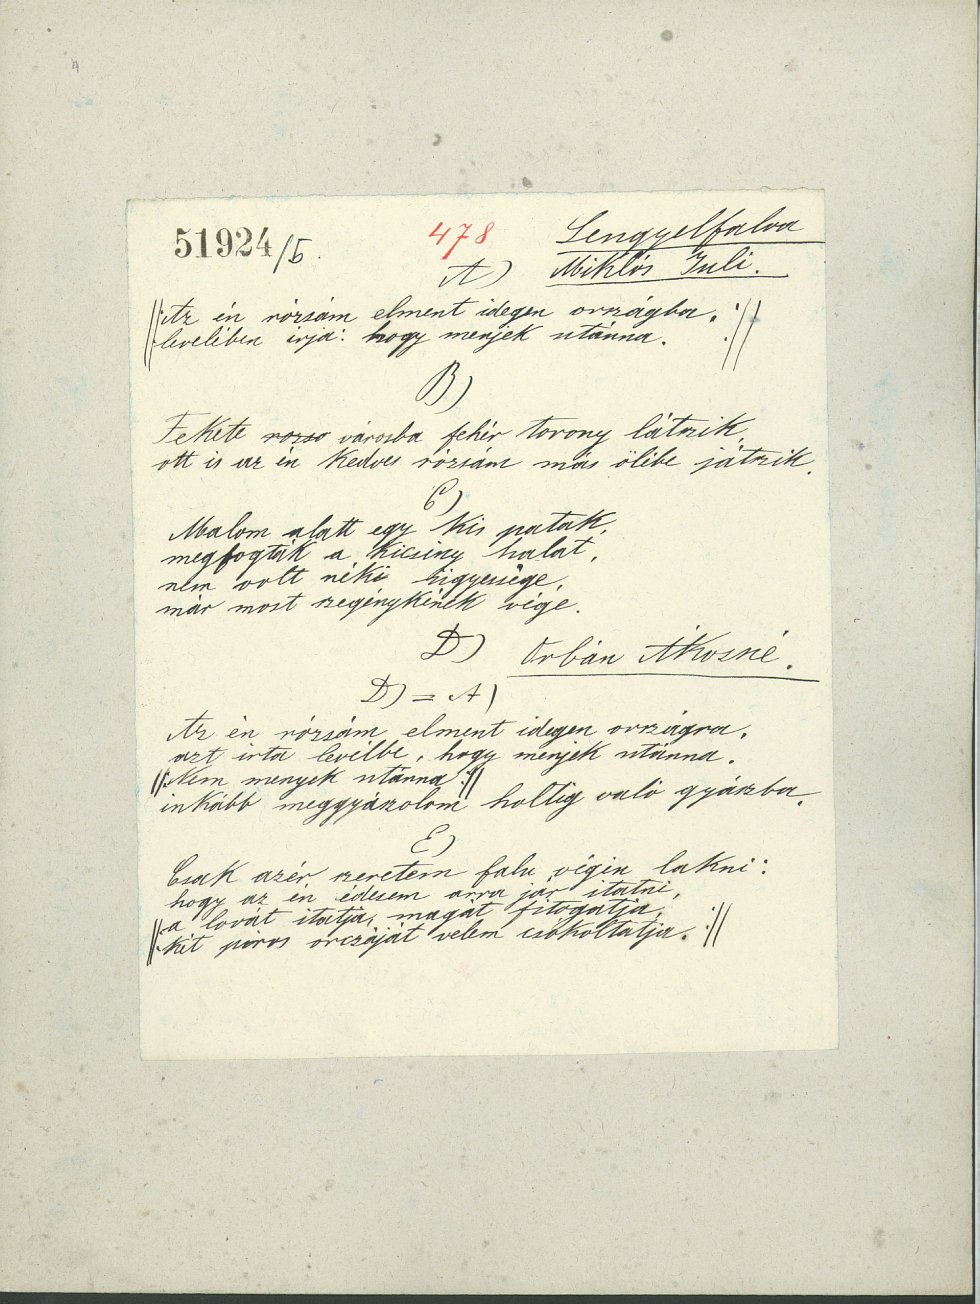 51924/5.
478
Lengyelfalva
A)
Miklós Juli.
||: Az én rózsám elment idegen országba. :||
levelében irja: hogy menjek utánna.
B)
Fekete városba fehér torony látszik,
ott is az én kedves rózsám más ölibe játszik.
C)
Malom alatt egy kis patak,
megfogták a kicsiny halat,
nem volt néki
már most szegénykének vége.
D)
Orbán Ákosné.
D) = A)
Az én rózsám elment idegen országra,
azt irta levélbe, hogy menjek utánna.
||: Nem menyek utánna :||
inkább meggyászolom holtig való gyászba.
E)
Csak azér szeretem falu végin lakni:
hogy az én édesem arra jár itatni,
||: a lovát itatja, magát fitogatja,
két piros orczáját velem csókoltatja. :||